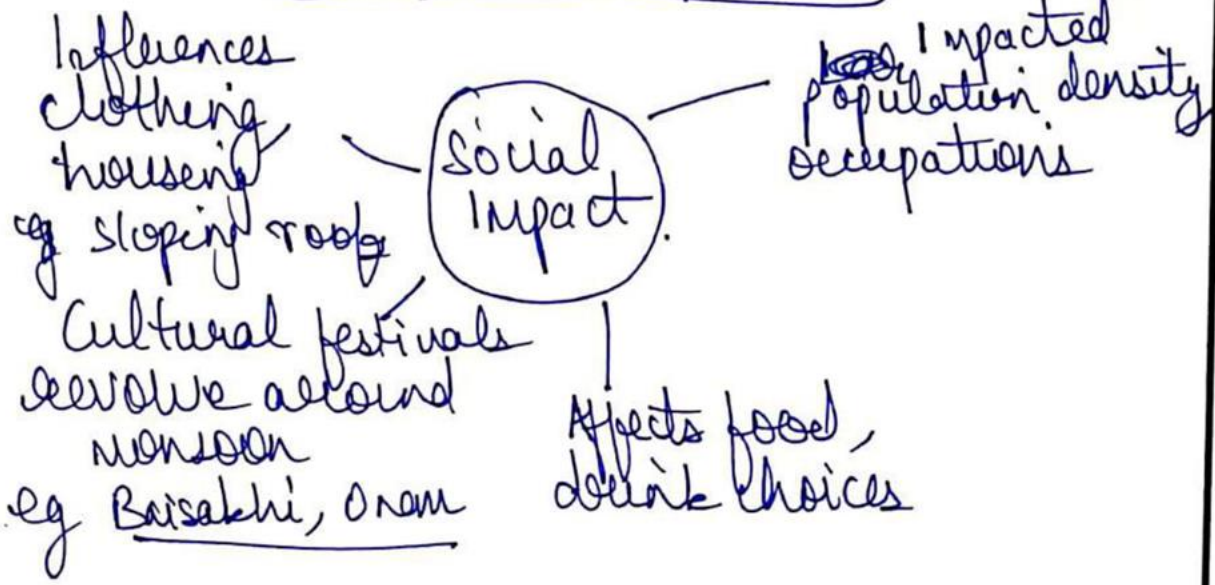 Influences
clothing,
housing
eg sloping roofs
Social
Impact
Impacted
population density
occupations
Cultural festivals
revolve around
monsoon
eg Baisakhi, Onam
Affects food,
drink choices